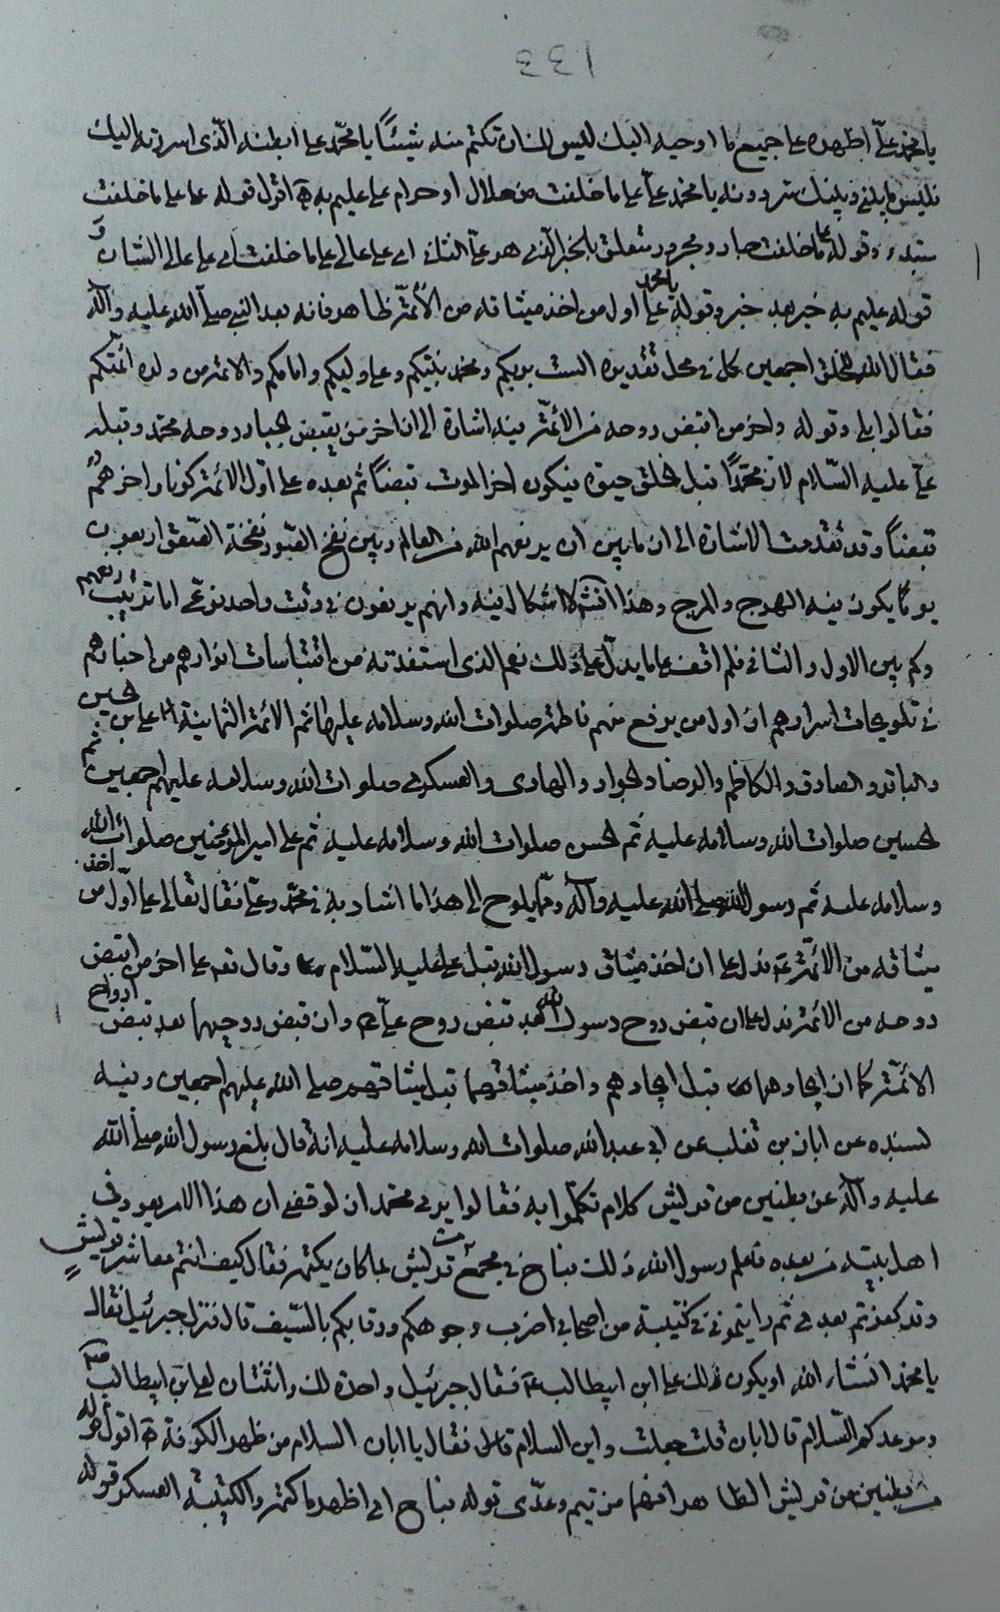 ١٣٣
يا محمد علىّ اظهره على جميع ما اوحيه اليك ليس لك ان تكتم منه شيئًا يا محمّد على ابطنه الّذى اسررته اليك
فليس فيما بينى وبينك سر دونه يا محمد علىّ على ما خلقت من حلال او حرام على عليم به ة اقول قوله على على ما خلقت
مبتدء وقوله على ما خلقت جار ومجرور متعلق بالخبر الّذى هو علىّ الثانى اى على عالى على ما خلقت اى على عالى الشان و
قوله عليم به خبر بعد خبر وقوله يا محمد علىّ اول من اخذ ميثاقه من الأئمّة ظاهر فانه بعد النبى صلّى الله عليه وآله
فقال الله للخلق اجمعين كل فى محل تقديره الست بربكم ومحمد نبيّكم وعلى وليكم وامامكم والائمة من ولده ائمّتكم
فقالوا بلى وقوله واخر من اقبض روحه من الأئمّة فيه اشارة الى ان اخر من يقبض الجبار روحه محمّد وقبله
علىّ عليه السّلام لان محمّدًا قبل الخلق حيوة فيكون اخر الموت قبضًا ثم بعده على اوّل الائمة كونا واخرهم
قبضًا وقد تقدمت الاشارة الى ان ما بين ان يرفعهم الله من العالم وبين نفخ الصّور نفخة الصّعق اربعون
يومًا يكون فيه الهرج والمرج وهذا لا اشكال فيه وانهم يرفعون فى وقت واحد نوعّى اما ترتيب رفعهم
وكم بين الاول والثانى فلم اقف على ما يدلّ على ذلك نعم الذى استفدته من اقتباسات انوارهم من اخبارهم
فى تلويحات اسرارهم ان اول من يرفع منهم فاطمة صلوات الله وسلامه عليها ثم الائمة الثمانية على بن الحسين
والباقر والصادق والكاظم والرضا والجواد والهادى والعسكرى صلوات الله وسلامه عليهم اجمعين ثم
الحسين صلوات الله وسلامه عليه ثم الحسن صلوات الله وسلامه عليه ثم على امير المؤمنين صلوات الله
وسلامه عليه ثم رسول الله صلى الله عليه وآله وممّا يلوح الى هذا ما اشار به فى محمّد وعلىّ فقال تعالى على اوّل من اخذ
ميثاقه من الائمّة ع فدل على ان اخذ ميثاق رسول الله قبل على عليه السّلام وقال تعه على اخر من اقبض
روحه من الائمة فدل على ان قبض روح رسول الله بعد قبض روح علىّ ع وان قبض روحيهما بعد قبض ارواح
الائمّة كما ان ايجادهما قبل ايجادهم واخذ ميثاقهما قبل ميثاقهم صلى الله عليهم اجمعين وفيه
بسنده عن ابان بن تغلب عن ابى عبد الله صلوات الله وسلامه عليه انه قال بلغ رسول الله صلى الله
عليه وآله عن بطنين من قريش كلام تكلّموا به فقالوا يرى محمد ان لو قضى ان هذا الامر يعود فى
اهل بيته من بعده فاعلم رسول الله ذلك فباح فى مجمع من قريش بما كان يكتمه فقال كيف انتم معاشر قريش
وقد كفرتم بعدى ثم رايتمونى فى كتيبة من اصحابى اضرب وجوهكم ورقابكم بالسّيف قال فنزل جبرئيل فقال
يا محمد ان شاء الله او يكون ذلك على ابن ابيطالب ع فقال جبرئيل واحدة لك واثنتان لعلى بن ابيطالب
وموعدكم السّلام قال ابان قلت جعلت واين السلام قال فقال يا ابان السلام من ظهر الكوفة ة اقول قوله
بطنين من قريش الظاهر انهما من تيم وعدّى قوله فباح اى اظهر ما كتمه والكتيبة العسكر قوله